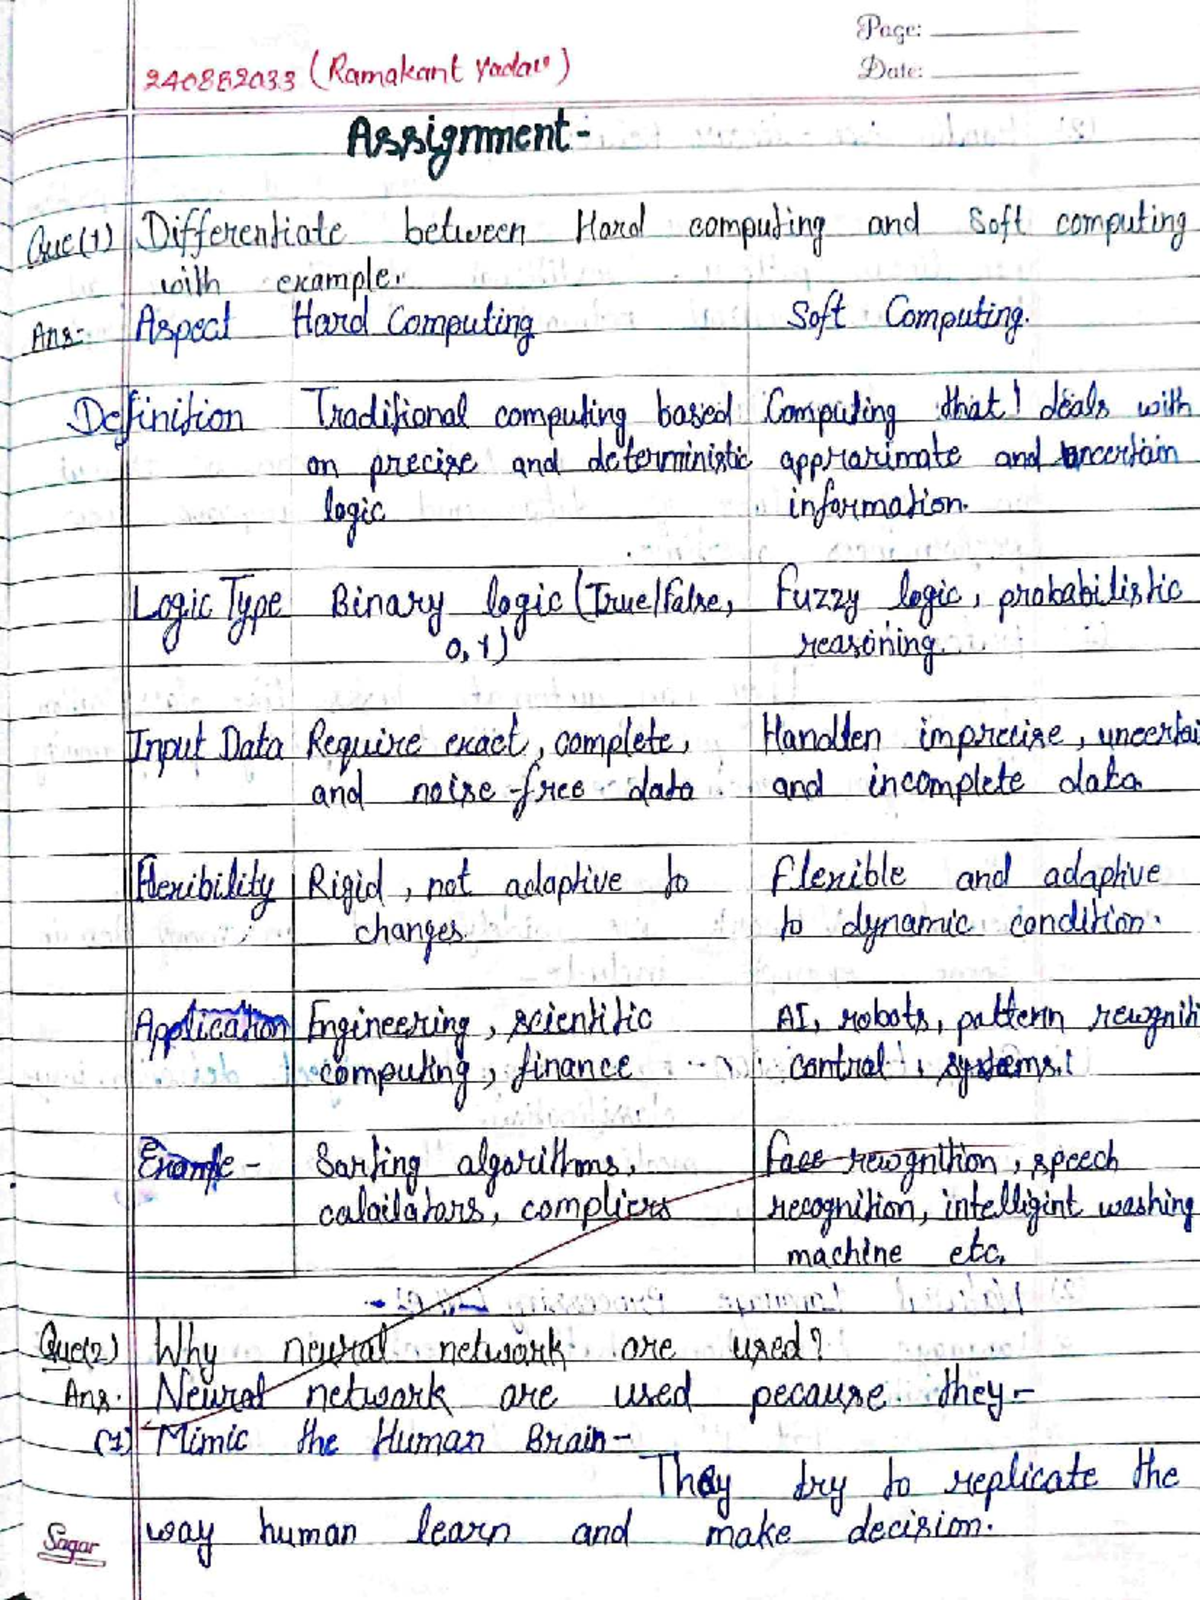 Page:
Date:
240882033 (Ramakant Yadav)
Assignment -
Que(1) Differentiate between Hard computing and Soft computing
with example.
Ans:- Aspect Hard Computing Soft Computing.
Definition Traditional computing based Computing that deals with
on precise and deterministic apprarimate and uncertain
logic information.
Logic Type Binary logic (True/False, Fuzzy logic, probabilistic
0, 1) reasoning.
Input Data Require exact, complete, Handlen imprecise, uncertai
and noise-free data and incomplete data
Flexibility Rigid, not adaptive to Flexible and adaptive
changes. to dynamic condition.
Application Engineering, scientific AI, robots, pattern recogniti
computing, finance control, systems.
Example - Sorting algorithms, face recognition, speech
calculators, compliers recognition, intelligint washing
machine etc.
Que(2) Why neural network are used?
Ans. Neural network are used pecause they-
(1) Mimic the Human Brain-
They try to replicate the
way human learn and make decision.
Sagar